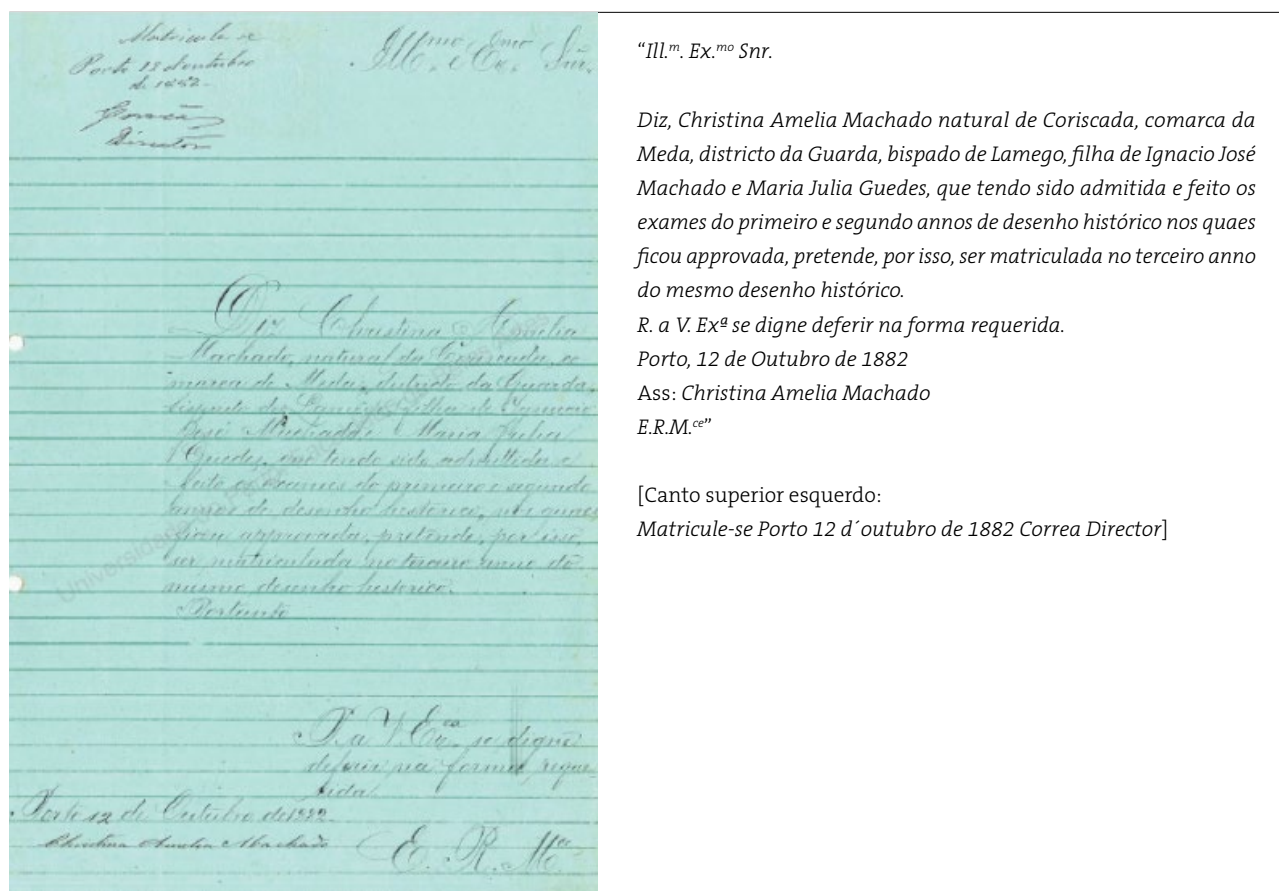 Matricule se
Porto 12 d'outubro
de 1882.
Correa
Director
Ill.mo e Ex.mo Snr.
Diz Christina Amelia
Machado, natural da Coriscada, co
marca de Meda, districto da Guarda,
bispado de Lamego, filha de Ignacio
José Machado e Maria Julia
Guedes, que tendo sido admittida e
feito os exames do primeiro e segundo
annos de desenho historico, nos quaes
ficou approvada, pretende, por isso,
ser matriculada no terceiro anno do
mesmo desenho historico.
Portanto
P. a V. Ex.ca se digne
deferir na forma reque-
rida.
Porto 12 de Outubro de 1882.
Christina Amelia Machado
E. R. M.ce
Universidade
“Ill.m. Ex.mo Snr.
Diz, Christina Amelia Machado natural de Coriscada, comarca da
Meda, districto da Guarda, bispado de Lamego, filha de Ignacio José
Machado e Maria Julia Guedes, que tendo sido admitida e feito os
exames do primeiro e segundo annos de desenho histórico nos quaes
ficou approvada, pretende, por isso, ser matriculada no terceiro anno
do mesmo desenho histórico.
R. a V. Exª se digne deferir na forma requerida.
Porto, 12 de Outubro de 1882
Ass: Christina Amelia Machado
E.R.M.ce”
[Canto superior esquerdo:
Matricule-se Porto 12 d´outubro de 1882 Correa Director]